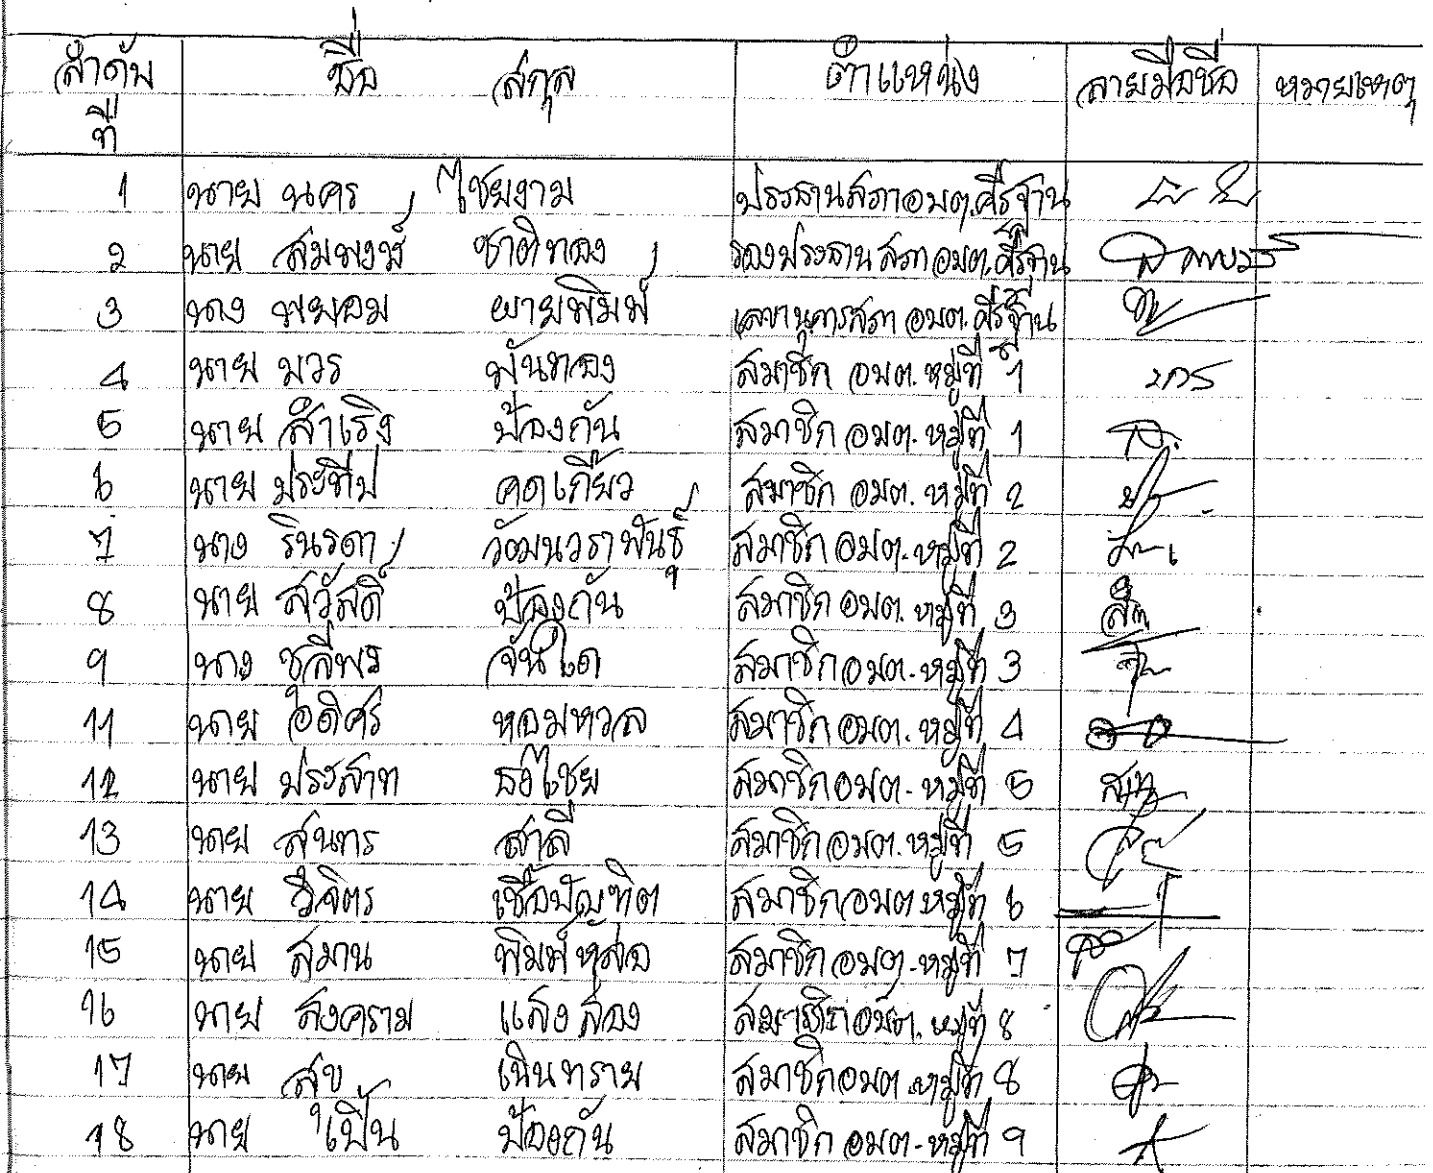 ลำดับที่ ชื่อ สกุล ตำแหน่ง ลายมือชื่อ หมายเหตุ
1 นาย นคร ไชยงาม ประธานสภาอบต.ศรีฐาน
2 นาย สมพงษ์ ชาติทอง รองประธานสภาอบต.ศรีฐาน
3 นาง พยอม ผายพิมพ์ เลขานุการสภา อบต.ศรีฐาน
4 นาย บวร พันทอง สมาชิก อบต.หมู่ที่ 1
5 นาย สำเริง ป้องกัน สมาชิก อบต.หมู่ที่ 1
6 นาย ประทีป คดเกี้ยว สมาชิก อบต.หมู่ที่ 2
7 นาง รินรดา วัฒนวราพันธุ์ สมาชิก อบต.หมู่ที่ 2
8 นาย สวัสดิ์ ป้องกัน สมาชิก อบต.หมู่ที่ 3
9 นาง ชุลีพร จันโด สมาชิก อบต.หมู่ที่ 3
11 นาย อดิศร หอมหวล สมาชิก อบต.หมู่ที่ 4
12 นาย ประสาท ไชย สมาชิก อบต.หมู่ที่ 5
13 นาย สุนทร สาลี สมาชิก อบต.หมู่ที่ 5
14 นาย วิจิตร เชื้อบัณฑิต สมาชิก อบต.หมู่ที่ 6
15 นาย สมาน พิมพ์หล่อ สมาชิก อบต.หมู่ที่ 7
16 นาย สงคราม แสงส่อง สมาชิก อบต.หมู่ที่ 8
17 นาย สุข เนินทราย สมาชิก อบต.หมู่ที่ 8
18 นาย เป็น ป้องกัน สมาชิก อบต.หมู่ที่ 9